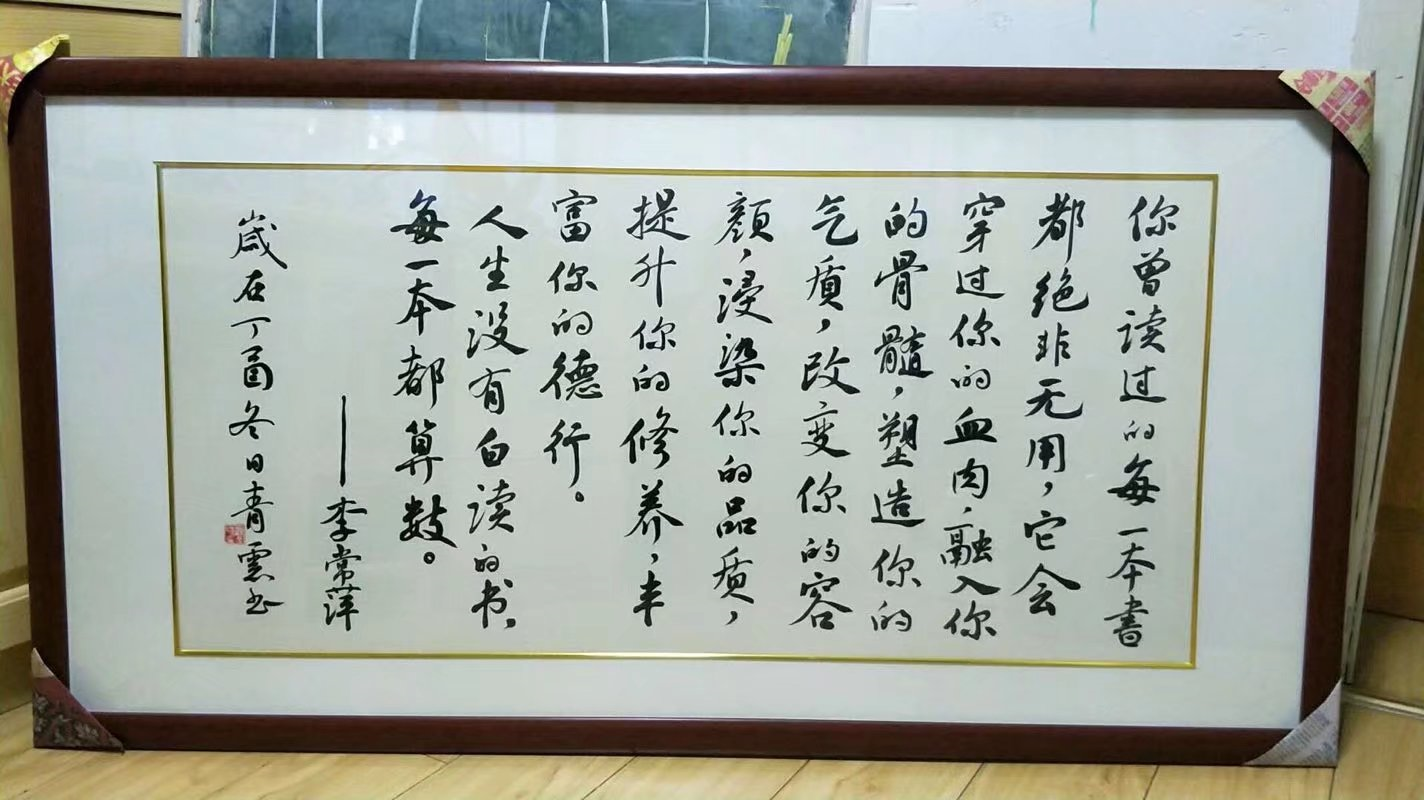 你曾读过的每一本書
都绝非无用，它会
穿过你的血肉，融入你
的骨髓，塑造你的
气质，改变你的容
颜，浸染你的品质，
提升你的修养，丰
富你的德行。
人生没有白读的书，
每一本都算数。
——李常萍
岁在丁酉冬日青云书